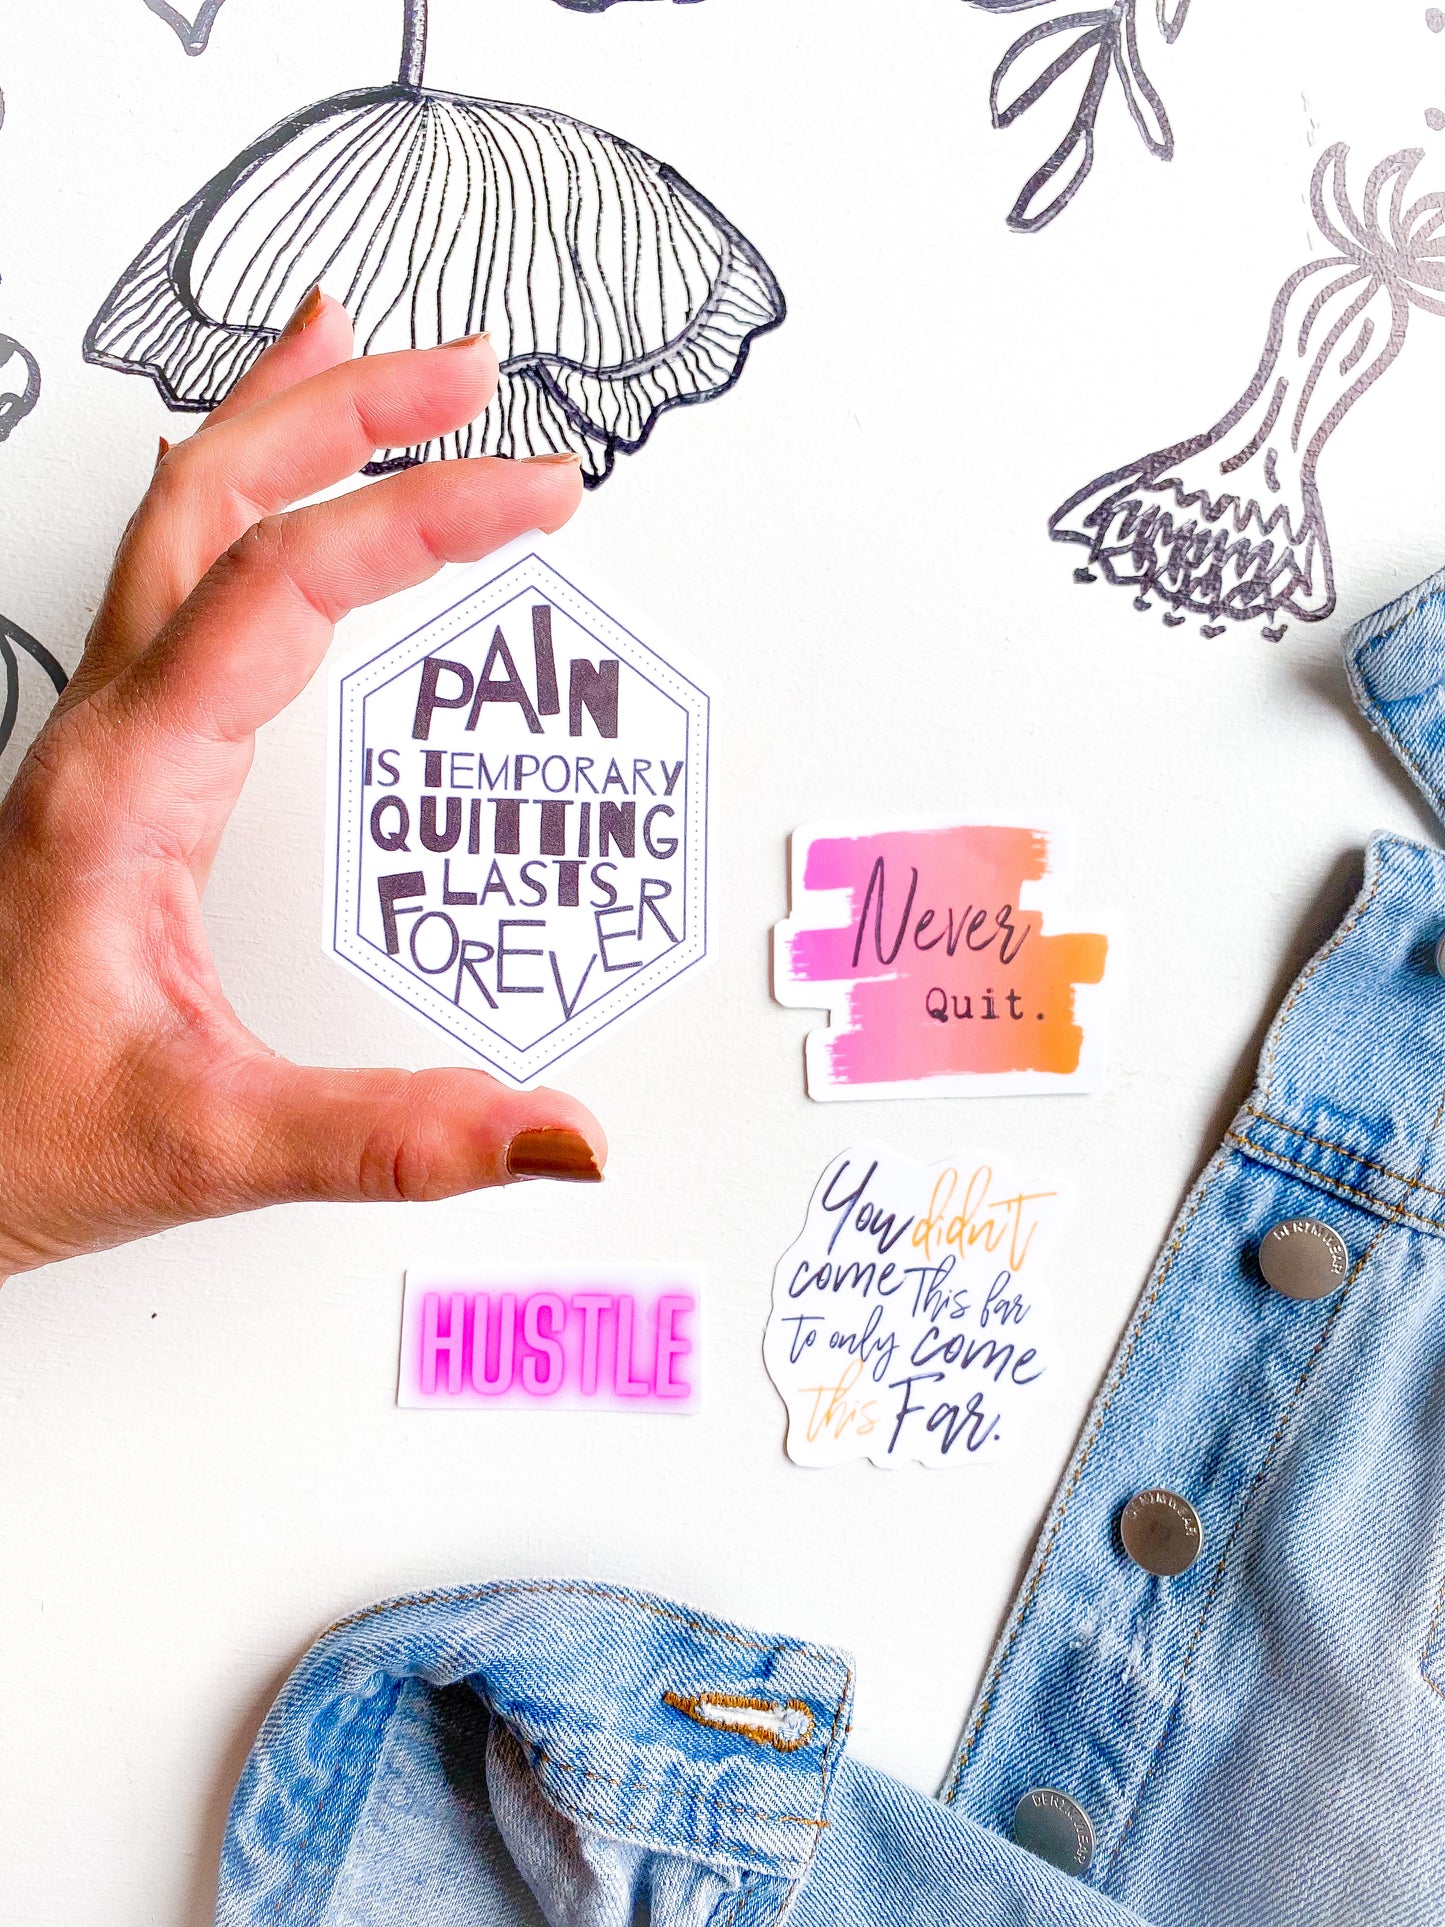 PAIN
IS TEMPORARY
QUITTING
LASTS
FOREVER
Never
Quit.
You didn't
come This far
To only come
this Far.
HUSTLE
DENIMWEAR
DENIMWEAR
DENIMWEAR